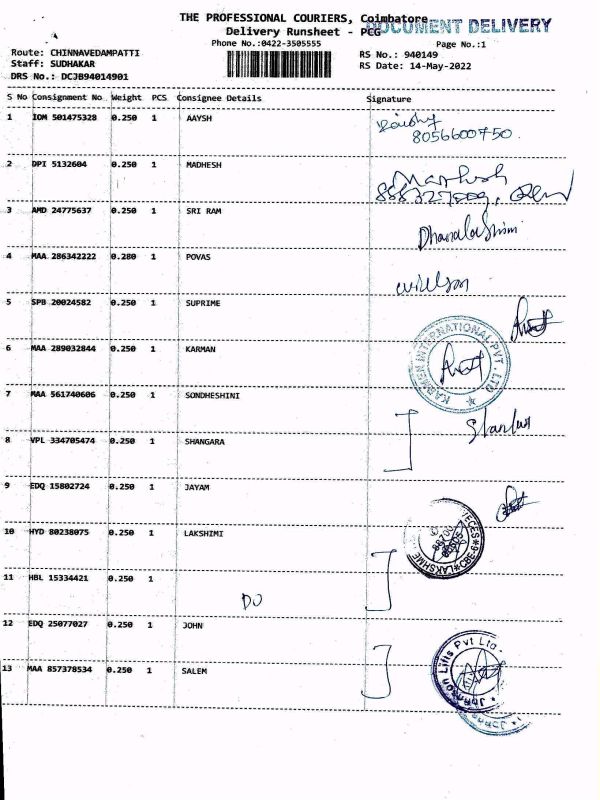 THE PROFESSIONAL COURIERS, Coimbatore
DOCUMENT DELIVERY
Delivery Runsheet - PCG
Phone No.:0422-3505555
Page No.:1
Route: CHINNAVEDAMPATTI
RS No.: 940149
Staff: SUDHAKAR
RS Date: 14-May-2022
DRS No.: DCJB94014901
S No Consignment No Weight PCS Consignee Details Signature
1 IOM 501475328 0.250 1 AAYSH
8056600750
2 DPI 5132604 0.250 1 MADHESH
3 AMD 24775637 0.250 1 SRI RAM
4 MAA 286342222 0.280 1 POVAS
5 SPB 20024582 0.250 1 SUPRIME
6 MAA 289032844 0.250 1 KARMAN
KARMEN INTERNATIONAL PVT. LTD
7 MAA 561740606 0.250 1 SONDHESHINI
8 VPL 334705474 0.250 1 SHANGARA
9 EDQ 15802724 0.250 1 JAYAM
10 HYD 80238075 0.250 1 LAKSHIMI
11 HBL 15334421 0.250 1
DO
12 EDQ 25077027 0.250 1 JOHN
13 MAA 857378534 0.250 1 SALEM
Johnson Lifts Pvt Ltd